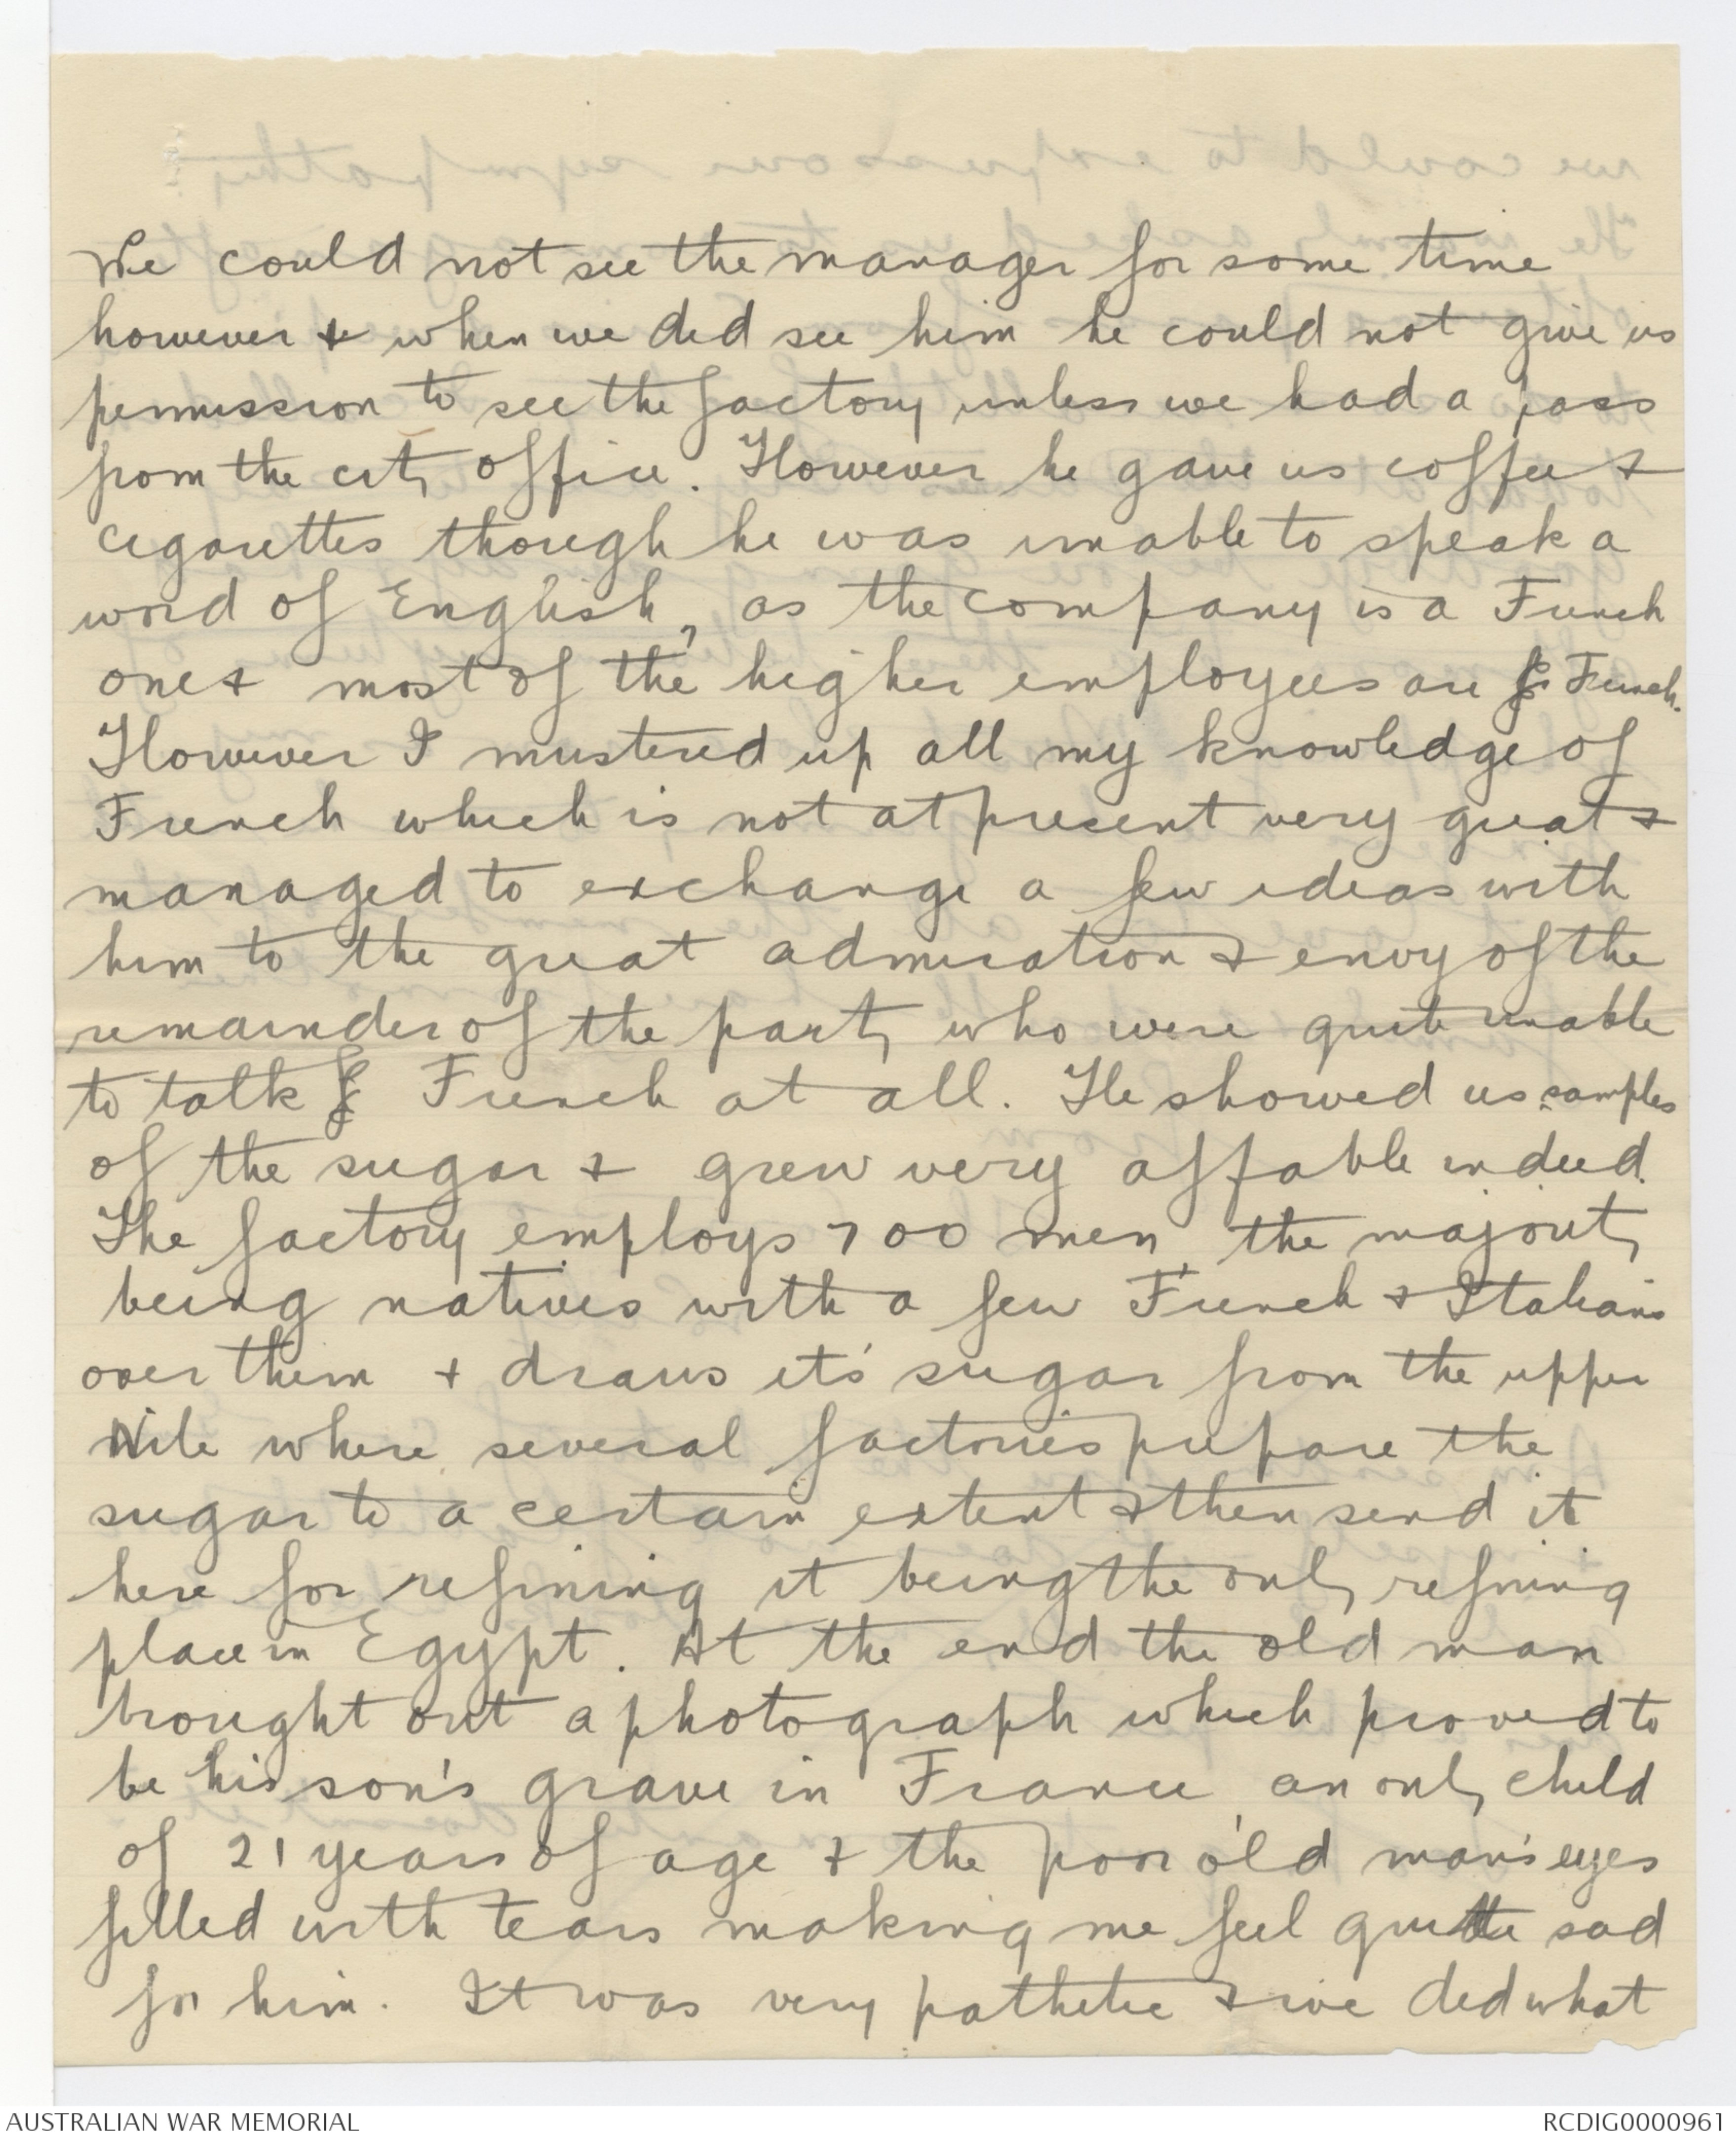 We could not see the manager for some time
however & when we did see him he could not give us
permission to see the factory unless we had a pass
from the city office. However he gave us coffee &
cigarettes though he was unable to speak a
word of English, as the company is a French
one & most of the higher employees are French.
However I mustered up all my knowledge of
French which is not at present very great &
managed to exchange a few ideas with
him to the great admiration & envy of the
remainder of the party who were quite unable
to talk French at all. He showed us samples
of the sugar & grew very affable indeed.
The factory employs 700 men, the majority
being natives with a few French & Italians
over them + draws it's sugar from the upper
Nile where several factories prepare the
sugar to a certain extent & then send it
here for refining it being the only refining
place in Egypt. At the end the old man
brought out a photograph which proved to
be his son's grave in France, an only child
of 21 years of age & the poor old man's eyes
filled with tears making me feel quite sad
for him. It was very pathetic & we did what
AUSTRALIAN WAR MEMORIAL
RCDIG0000961